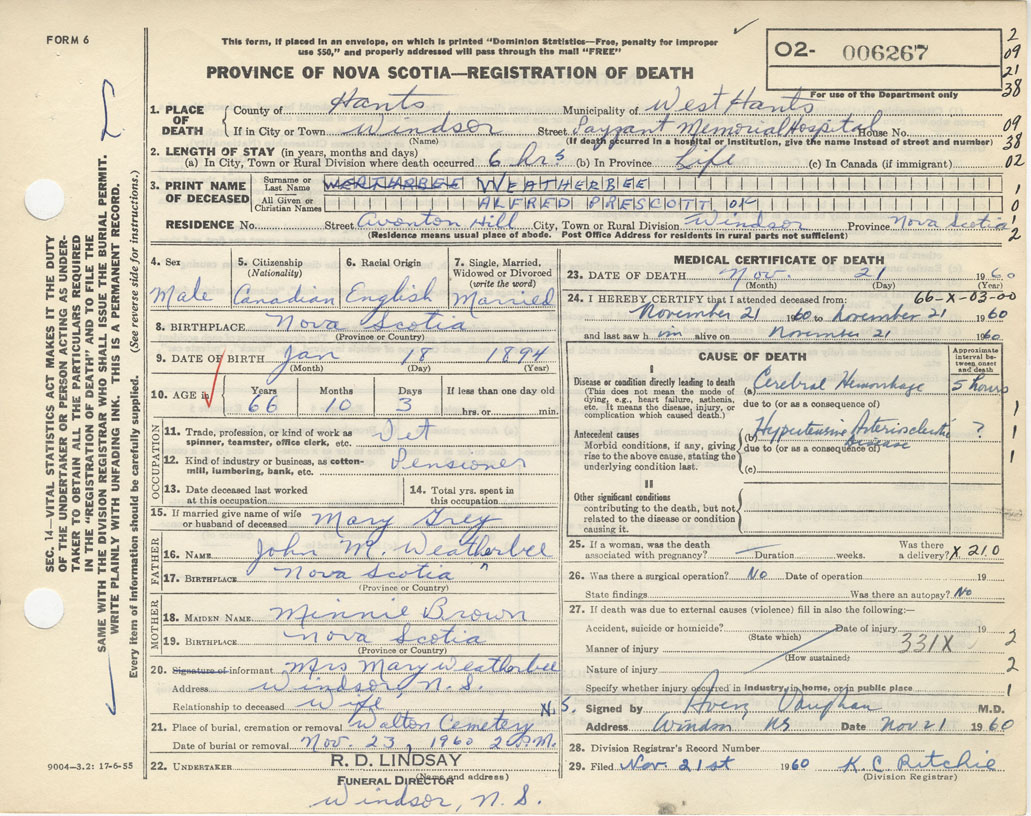 FORM 6
This form, if placed in an envelope, on which is printed "Dominion Statistics—Free, penalty for improper
use $50," and properly addressed will pass through the mail "FREE"
PROVINCE OF NOVA SCOTIA—REGISTRATION OF DEATH
O2- 006267
For use of the Department only
2
09
21
38
09
38
02
1
0
1
2
SEC. 14—VITAL STATISTICS ACT MAKES IT THE DUTY
OF THE UNDERTAKER OR PERSON ACTING AS UNDER-
TAKER TO OBTAIN ALL THE PARTICULARS REQUIRED
IN THE "REGISTRATION OF DEATH" AND TO FILE THE
SAME WITH THE DIVISION REGISTRAR WHO SHALL ISSUE THE BURIAL PERMIT.
WRITE PLAINLY WITH UNFADING INK. THIS IS A PERMANENT RECORD.
Every item of information should be carefully supplied. (See reverse side for instructions.)
1. PLACE OF DEATH County of Hants Municipality of West Hants
If in City or Town Windsor Street Payzant Memorial Hospital House No.
(Name) (If death occurred in a hospital or institution, give the name instead of street and number)
2. LENGTH OF STAY (in years, months and days)
(a) In City, Town or Rural Division where death occurred 6 hrs (b) In Province Life (c) In Canada (if immigrant)
3. PRINT NAME OF DECEASED Surname or Last Name WEATHERBEE
All Given or Christian Names ALFRED PRESCOTT
RESIDENCE No. Street Avonton Hill City, Town or Rural Division Windsor Province Nova Scotia
(Residence means usual place of abode. Post Office Address for residents in rural parts not sufficient)
4. Sex 5. Citizenship (Nationality) 6. Racial Origin 7. Single, Married, Widowed or Divorced (write the word)
Male Canadian English Married
8. BIRTHPLACE Nova Scotia
(Province or Country)
9. DATE OF BIRTH Jan 18 1894
(Month) (Day) (Year)
10. AGE in Years Months Days If less than one day old
66 10 3 hrs. or min.
OCCUPATION
11. Trade, profession, or kind of work as
spinner, teamster, office clerk, etc. Vet
12. Kind of industry or business, as cotten-
mill, lumbering, bank, etc. Pensioner
13. Date deceased last worked at this occupation 14. Total yrs. spent in this occupation
15. If married give name of wife
or husband of deceased Mary Grey
FATHER
16. NAME John M. Weatherbee
17. BIRTHPLACE Nova Scotia
(Province or Country)
MOTHER
18. MAIDEN NAME Minnie Brown
19. BIRTHPLACE Nova Scotia
(Province or Country)
20. Signature of informant Mrs Mary Weatherbee
Address Windsor, N.S.
Relationship to deceased Wife
21. Place of burial, cremation or removal Walton Cemetery N.S.
Date of burial or removal Nov. 23, 1960 2 P.M.
22. UNDERTAKER R. D. LINDSAY
(Name and address)
FUNERAL DIRECTOR
Windsor, N. S.
9004-3.2: 17-6-55
MEDICAL CERTIFICATE OF DEATH
23. DATE OF DEATH Nov. 21 1960
(Month) (Day) (Year)
66-X-03-00
24. I HEREBY CERTIFY that I attended deceased from:
November 21 1960 to November 21 1960
and last saw him alive on November 21 1960
CAUSE OF DEATH
Approximate interval between onset and death
I
Disease or condition directly leading to death
(This does not mean the mode of
dying, e.g., heart failure, asthenia,
etc. It means the disease, injury, or
complication which caused death.)
(a) Cerebral Hemorrhage 5 hours
due to (or as a consequence of)
Antecedent causes
Morbid conditions, if any, giving
rise to the above cause, stating the
underlying condition last.
(b) Hypertensive Arteriosclerotic Disease ?
due to (or as a consequence of)
(c)
1
1
1
II
Other significant conditions
contributing to the death, but not
related to the disease or condition
causing it.
25. If a woman, was the death
associated with pregnancy? Duration weeks. Was there a delivery? X 210
26. Was there a surgical operation? No Date of operation 19
State findings Was there an autopsy? No
27. If death was due to external causes (violence) fill in also the following:—
Accident, suicide or homicide? Date of injury 19 2
(State which)
Manner of injury 331X
(How sustained)
Nature of injury 2
Specify whether injury occurred in industry, in home, or in public place 1
Signed by Avery Vaughan M.D.
Address Windsor NS Date Nov 21 1960
28. Division Registrar's Record Number
29. Filed Nov. 21st 1960 K. C. Ritchie
(Division Registrar)